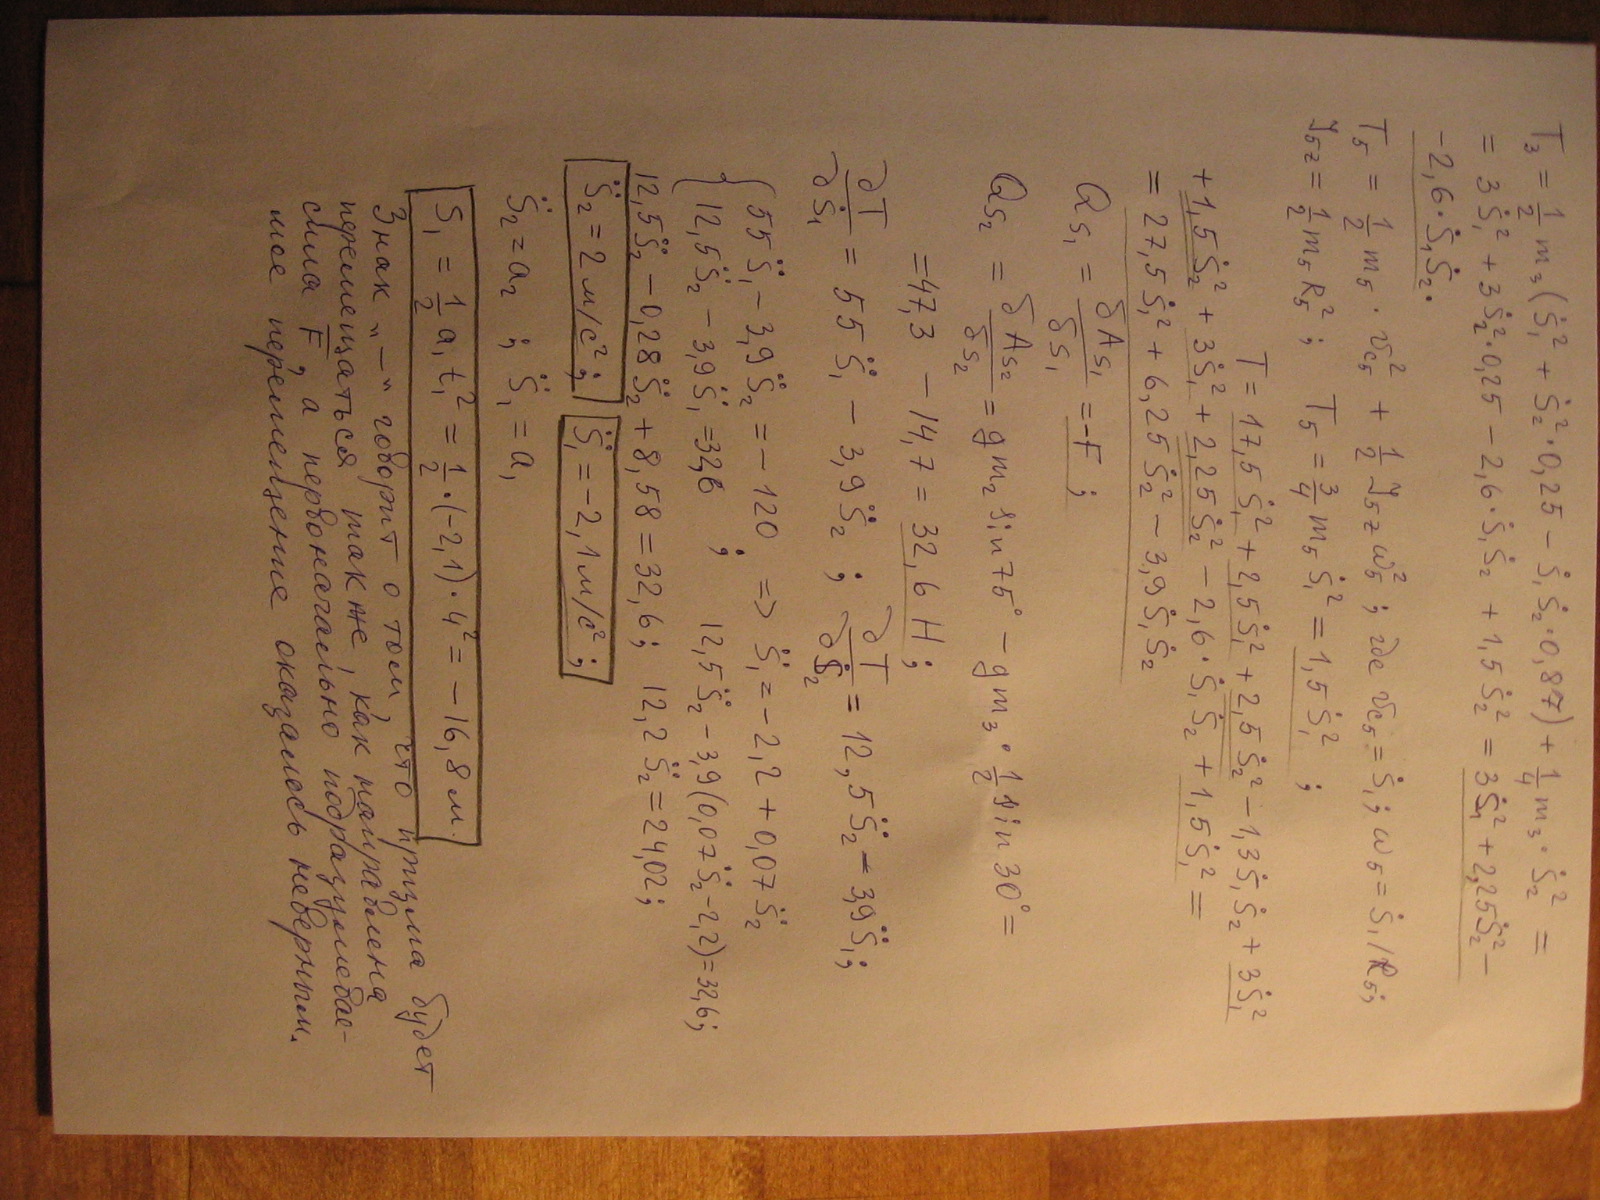 T₃ = 1/2 m₃(Ṡ₁² + Ṡ₂²·0,25 − Ṡ₁Ṡ₂·0,87) + 1/4 m₃·Ṡ₂² =
= 3Ṡ₁² + 3Ṡ₂²·0,25 − 2,6·Ṡ₁Ṡ₂ + 1,5Ṡ₂² = 3Ṡ₁² + 2,25Ṡ₂² −
−2,6·Ṡ₁Ṡ₂.
T₅ = 1/2 m₅·v_c₅² + 1/2 J₅z ω₅²; где v_c₅ = Ṡ₁; ω₅ = Ṡ₁/R₅;
J₅z = 1/2 m₅R₅²; T₅ = 3/4 m₅Ṡ₁² = 1,5Ṡ₁²;
T = 17,5Ṡ₁² + 2,5Ṡ₁² + 2,5Ṡ₂² − 1,3Ṡ₁Ṡ₂ + 3Ṡ₁²
+1,5Ṡ₂² + 3Ṡ₁² + 2,25Ṡ₂² − 2,6·Ṡ₁Ṡ₂ + 1,5Ṡ₁² =
= 27,5Ṡ₁² + 6,25Ṡ₂² − 3,9Ṡ₁Ṡ₂
Qs₁ = δAs₁/δs₁ = −F;
Qs₂ = δAs₂/δs₂ = gm₂ sin75° − gm₃·1/2 sin30° =
= 47,3 − 14,7 = 32,6 Н;
∂T/∂Ṡ₁ = 55Ṡ₁ − 3,9S̈₂; ∂T/∂Ṡ₂ = 12,5S̈₂ − 3,9S̈₁;
{ 55S̈₁ − 3,9S̈₂ = −120 => S̈₁ = −2,2 + 0,07S̈₂
12,5S̈₂ − 3,9S̈₁ = 32,6; 12,5S̈₂ − 3,9(0,07S̈₂ − 2,2) = 32,6;
12,5S̈₂ − 0,28S̈₂ + 8,58 = 32,6; 12,2S̈₂ = 24,02;
S̈₂ = 2 м/с²; S̈₁ = −2,1 м/с²;
S̈₂ = a₂; S̈₁ = a₁
S₁ = 1/2 a₁t₁² = 1/2·(−2,1)·4² = −16,8 м.
Знак „−" говорит о том, что призма будет
перемещаться так же, как направлена
сила F, а первоначально подразумевае-
мое перемещение оказалось неверным.